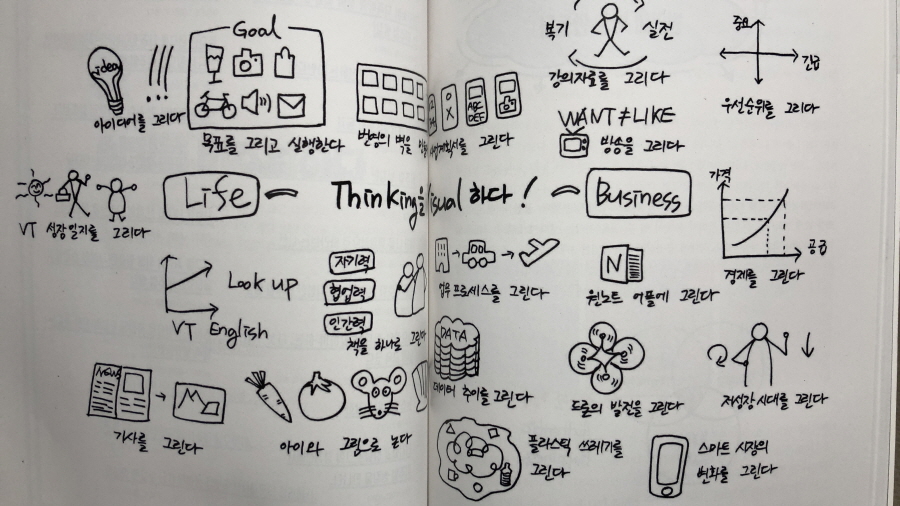 Goal
idea
!!!
아이디어를 그리다
목표를 그리고 실행한다
O
X
ABC
DEF
그린다
복기
실전
강의자료를 그리다
중요
긴급
우선순위를 그리다
WANT≠LIKE
방송을 그리다
Life
Thinking을 Visual 하다!
Business
VT 성장일지를 그리다
Look up
VT English
자기력
협업력
인간력
책을 하나로 그린다
업무 프로세스를 그린다
N
원노트 어플에 그린다
가격
공급
경제를 그린다
DATA
데이터 추이를 그린다
드론의 발전을 그린다
저성장시대를 그린다
NEWS
기사를 그린다
아이와 그림으로 논다
플라스틱 쓰레기를
그린다
스마트 시장의
변화를 그린다